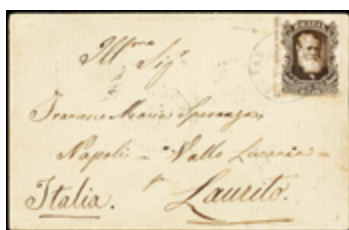 Ill.mo Sig.r
Maria Speranza
Napoli - Vallo Lucania -
Italia. p Laurito.